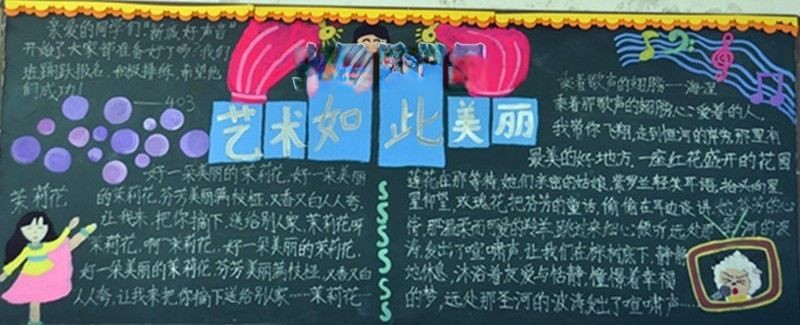 亲爱的同学们"新
好声音
开始了大家都准备好了吗?我们
班踊跃报名,积极排练,希望他
们成功!
——403
艺术如此美丽
茉莉花
好一朵美丽的茉莉花,好一朵美丽
的茉莉花,芬芳美丽满枝桠,又香又白人人夸,
让我来,把你摘下,送给别人家,茉莉花呀
茉莉花,啊 茉莉花,好一朵美丽的茉莉花,
好一朵美丽的茉莉花,芬芳美丽满枝桠,又香又白
人人夸,让我来把你摘下送给别人家……茉莉花
乘着歌声的翅膀——海涅
乘着那歌声的翅膀,心爱着的人,
我带你飞翔,走到恒河的岸旁,那里有
最美的好地方,一座红花盛开的花园
莲花在那等待,她们亲密的姑娘,紫罗兰轻笑耳语,抬头向星
星仰望,玫瑰花,把芬芳的童话,偷偷在耳边谈讲,
那温柔而可爱的羚羊,跳过来细心倾听,远处那
河的波
涛,发出了喧啸声,让我们在椰树底下,静静
地休息,沐浴着友爱与恬静,憧憬着幸福
的梦,远处那圣河的波涛发出了喧啸声……